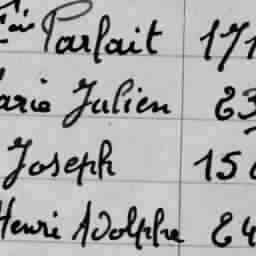 Parfait 171
Marie Julien 83
Joseph 15
Henri Adolphe 84